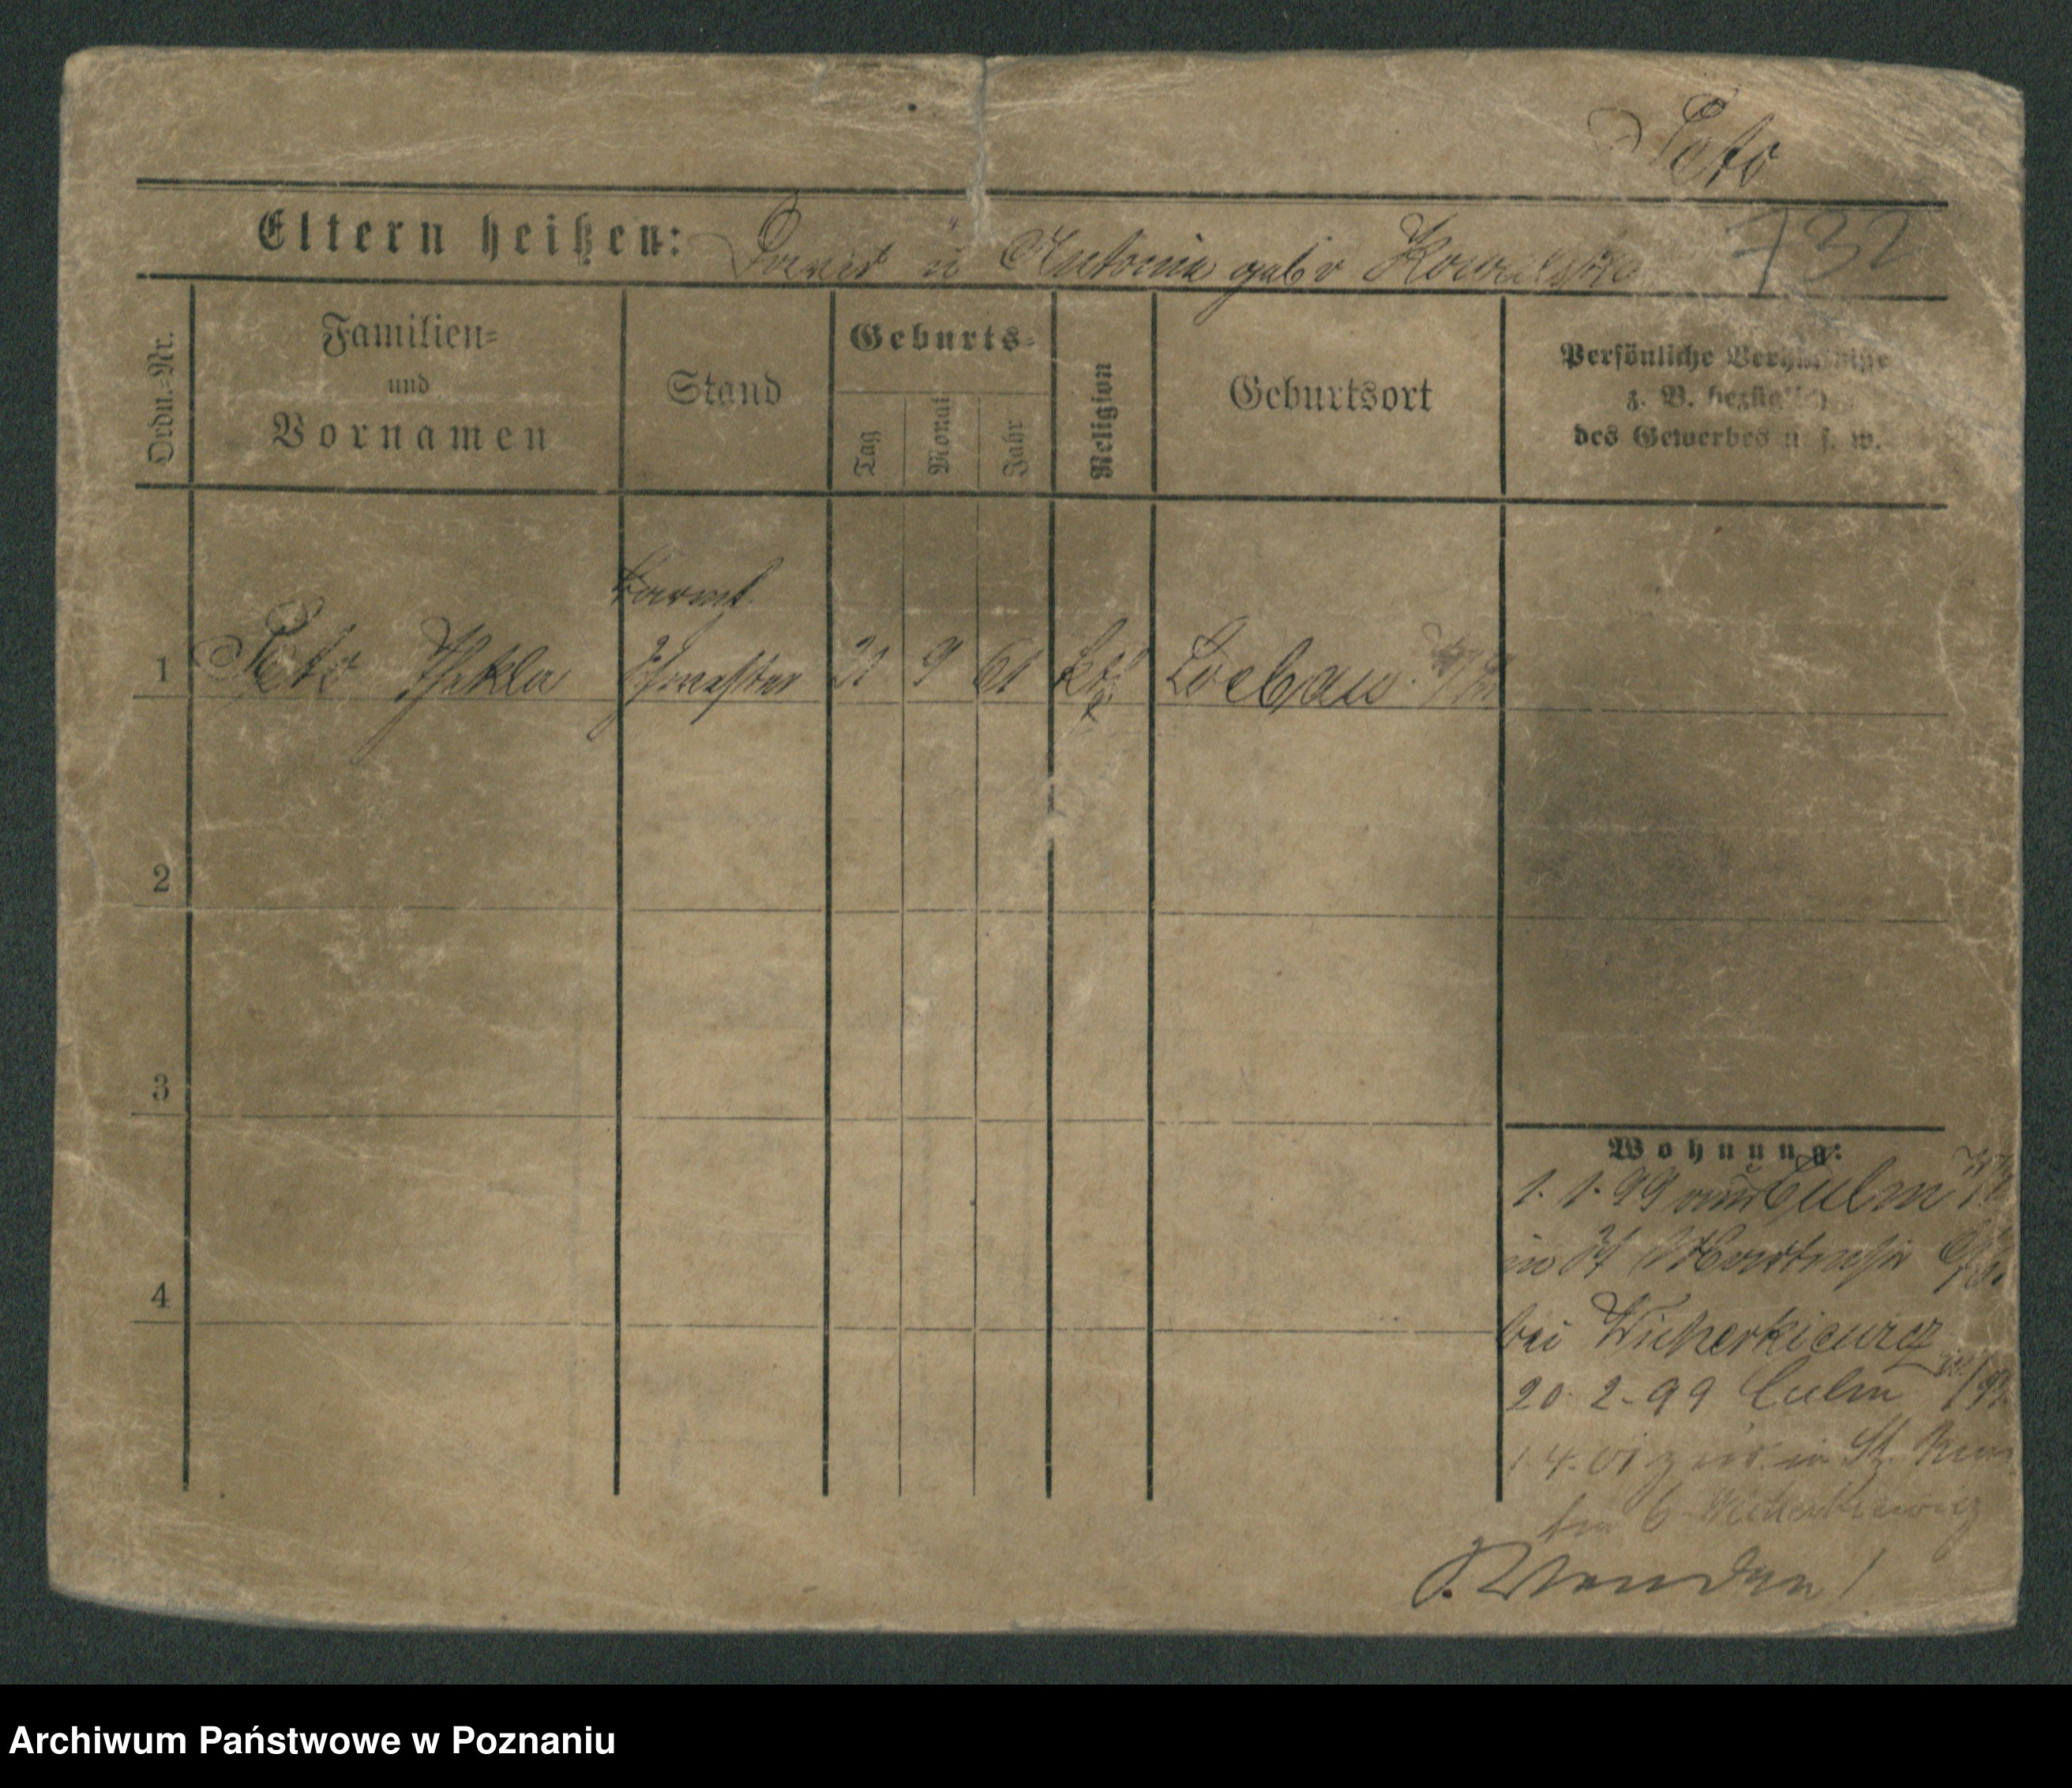 Peto
Eltern heißen: David u Antonie geb v Kowalska
732
Ordn.-Nr.
Familien-
und
Vornamen
Stand
Geburts-
Tag
Monat
Jahr
Religion
Geburtsort
Persönliche Verhältnisse
z. B. bezüglich
des Gewerbes u. s. w.
barmh.
1 Peto Thekla Schwester 21 9 61 kth Loebau
2
3
4
Wohnung:
1. 1. 99 von Culm
in St Martinstr
bei Wicherkiewicz
20. 2. 99 Culm
1 4. 01 zur. in St.
6 Wicherkiewicz
Wenden!
Archiwum Państwowe w Poznaniu